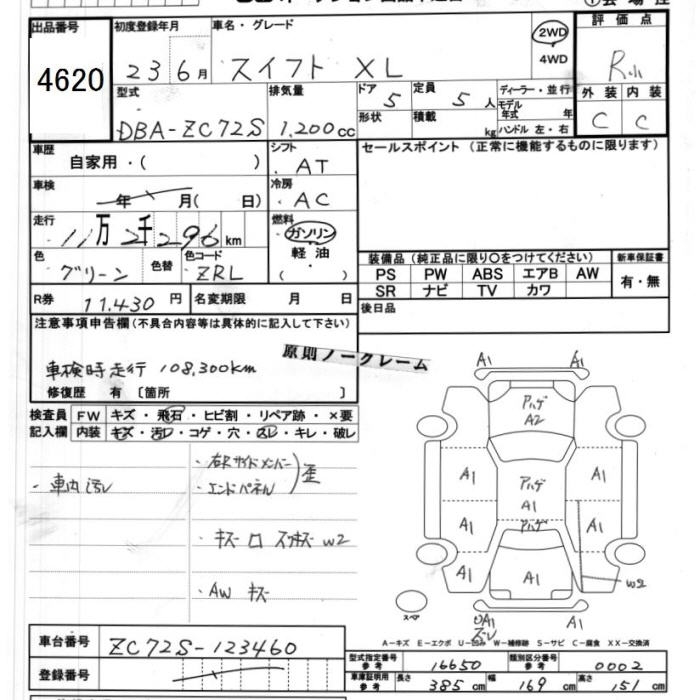 出品番号 初度登録年月 車名・グレード 評価点
4620 23 6月 スイフト XL 2WD 4WD R小
型式 排気量 ドア 5 定員 5人 ディーラー・並行 外装 内装
DBA-ZC72S 1,200cc 形状 積載 kg モデル年式 年 C C
ハンドル 左・右
車歴 自家用・( ) シフト AT セールスポイント(正常に機能するものに限ります)
車検 年 月( 日) 冷房 AC
走行 11万2千296km 燃料 ガソリン
軽油
色 グリーン 色替 色コード ZRL ( ) 装備品(純正品に限り○をつけてください) 新車保証書
PS PW ABS エアB AW 有・無
SR ナビ TV カワ
R券 11,430円 名変期限 月 日 後日品
注意事項申告欄(不具合内容等は具体的に記入して下さい)
原則ノークレーム
車検時走行 108,300km
修復歴 有〔箇所 〕
検査員 FW キズ・飛石・ヒビ割・リペア跡・×要
記入欄 内装 キズ・汚レ・コゲ・穴・スレ・キレ・破レ
・車内汚レ
・右Rサイドメンバー
・エンドパネル 歪
・AW キズ
A1 A1
アハゲ
A2
A1 アハゲ A1
A1
A1 アハゲ A1
A1 A1 W2
スペア A1 A1
A-キズ E-エクボ U-凹み W-補修跡 S-サビ C-腐食 XX-交換済
車台番号 ZC72S-123460
型式指定番号 参考 16650 類別区分番号 参考 0002
登録番号
車庫証明用 参考 長さ 385cm 幅 169cm 高さ 151cm